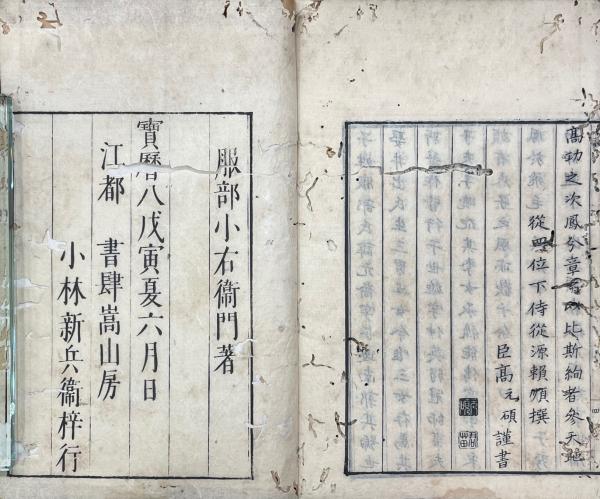 高功之次鳳兮章比斯絢者參天
從四位下侍從源賴順撰
臣高元碩謹書
服部小右衞門著
寶曆八戊寅夏六月日
江都 書肆嵩山房
小林新兵衞梓行